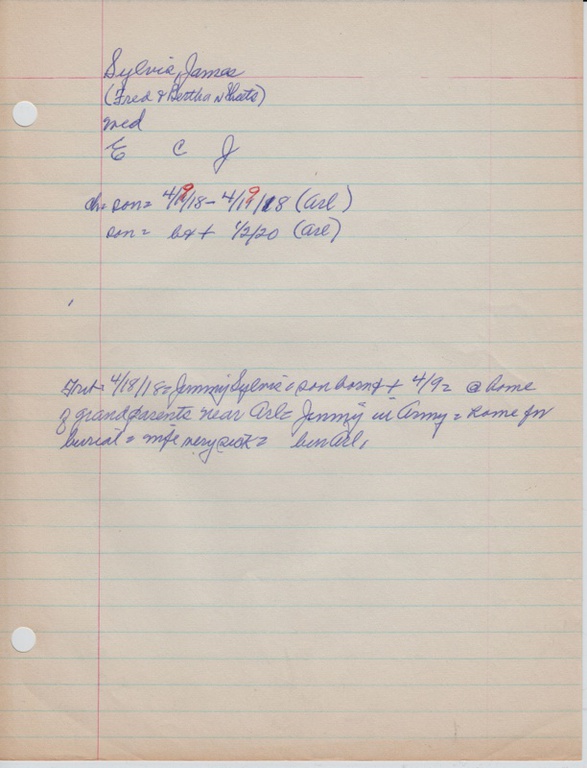 Sylvia, James
(Fred & Bertha n Sheets)
med
E C J
ch = son = 4/9/18 - 4/19/18 (Arl)
son = b x + 1/2/20 (Arl)
4/18/18 = Jimmy Sylvia = son born x + 4/9 = @ home
of grandparents near Arl = Jimmy in Army = home for
burial = wife very sick = bur Arl,